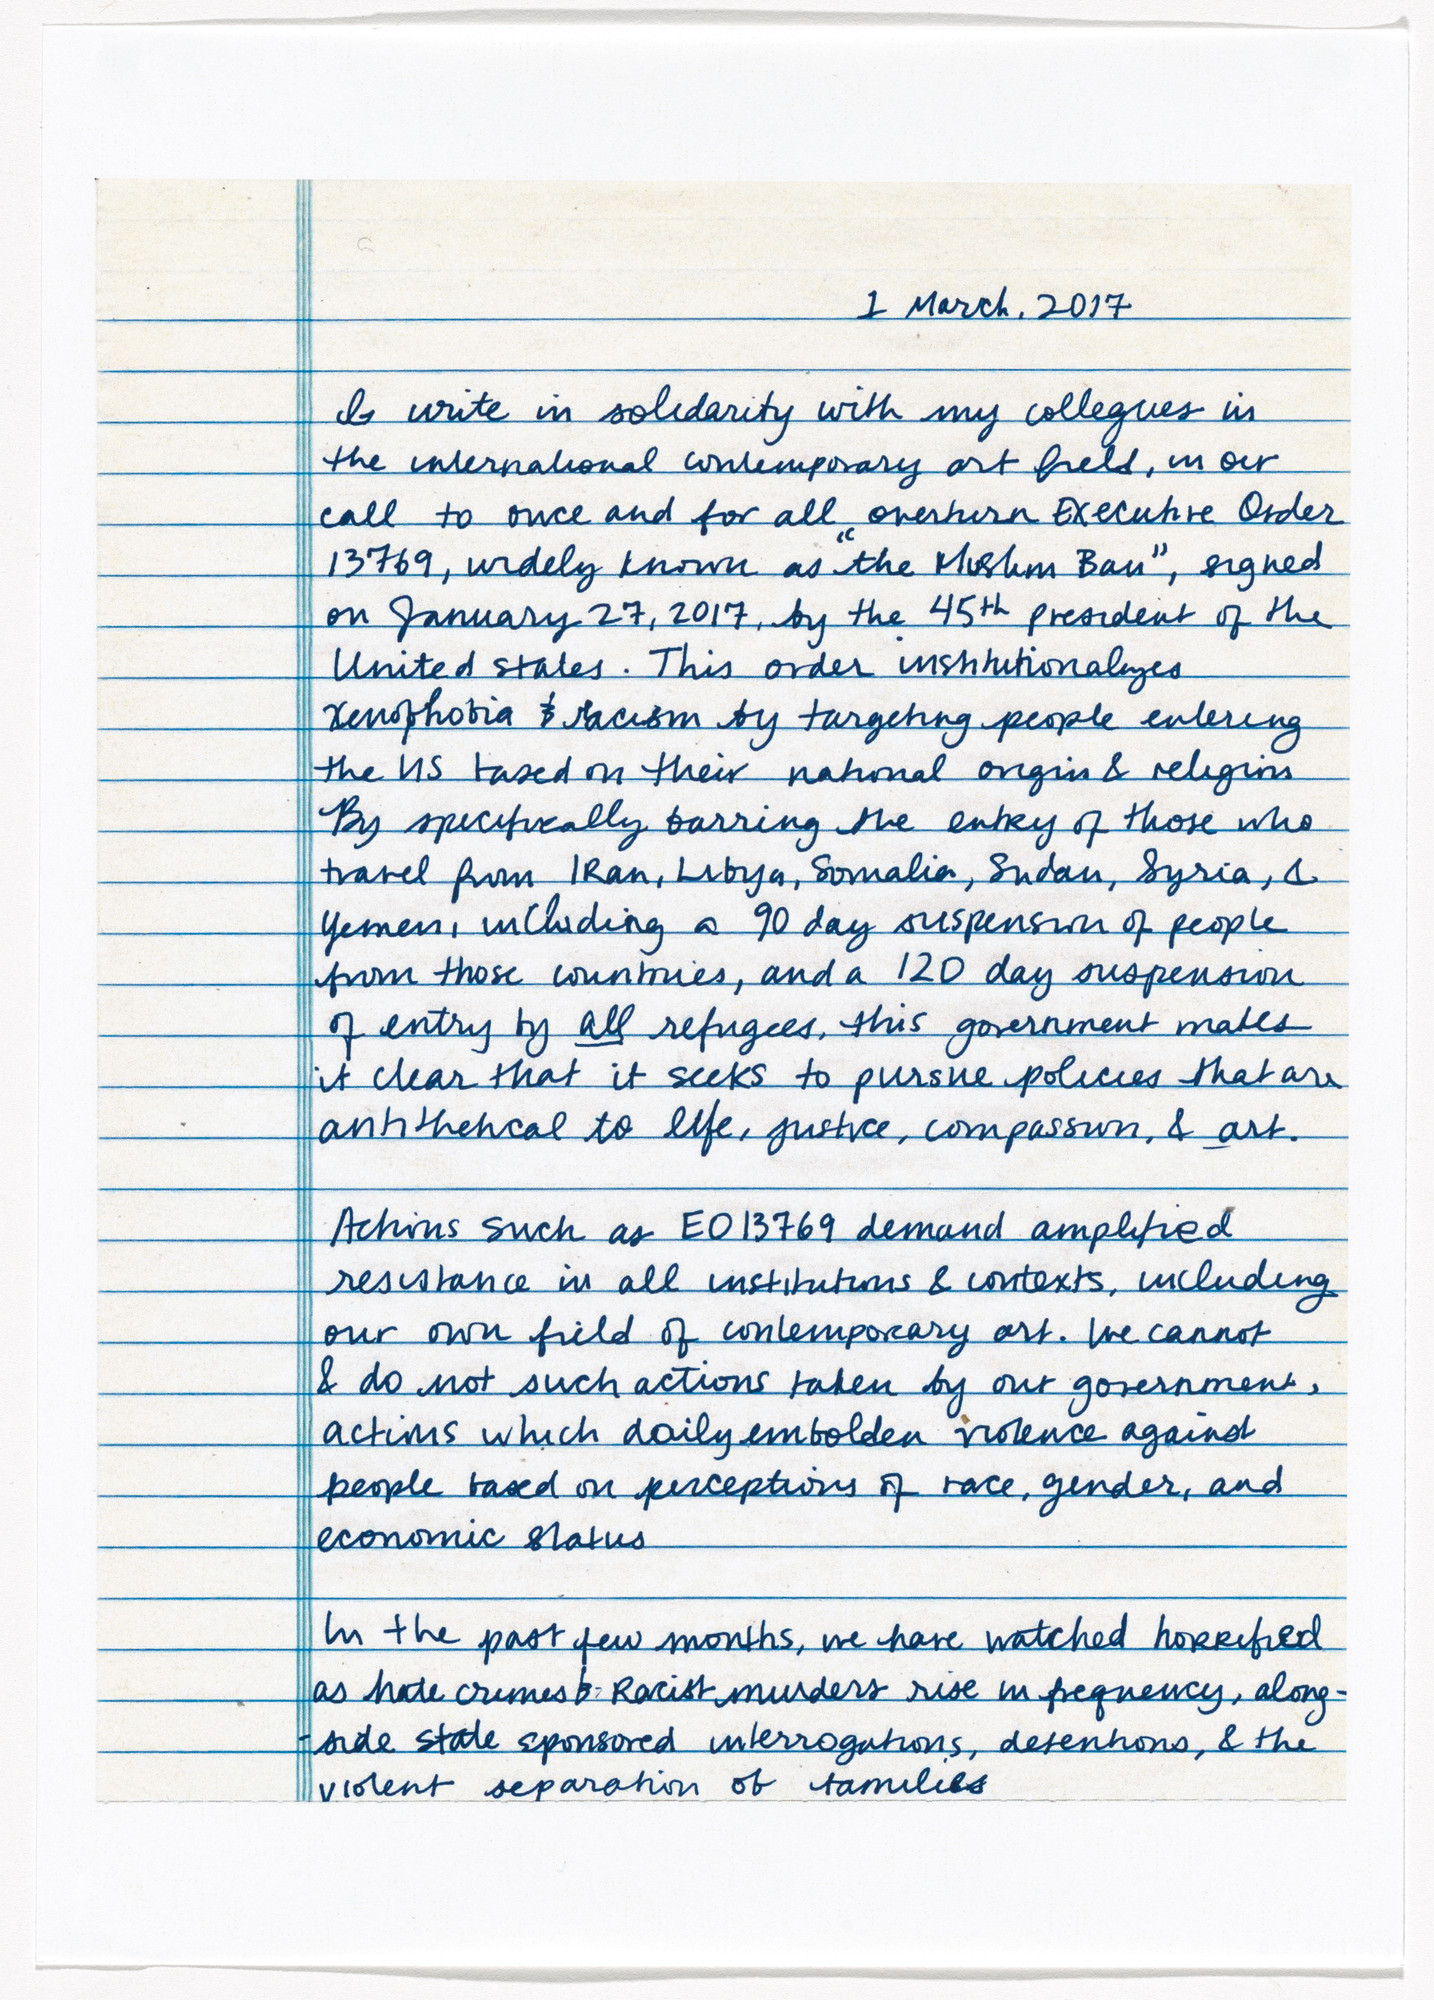 1 March, 2017
I write in solidarity with my collegues in
the international contemporary art field, in our
call to once and for all overturn Executive Order
13769, widely known as "the Muslim Ban", signed
on January 27, 2017, by the 45th president of the
United States. This order institutionalizes
xenophobia & racism by targeting people entering
the US based on their national origin & religion
By specifically barring the entry of those who
travel from Iran, Libya, Somalia, Sudan, Syria, &
Yemen, including a 90 day suspension of people
from those countries, and a 120 day suspension
of entry by all refugees, this government makes
it clear that it seeks to pursue policies that are
antithetical to life, justice, compassion, & art.
Actions such as EO13769 demand amplified
resistance in all institutions & contexts, including
our own field of contemporary art. We cannot
& do not such actions taken by our government,
actions which daily embolden violence against
people based on perceptions of race, gender, and
economic status
In the past few months, we have watched horrified
as hate crimes & racist murders rise in frequency, along-
-side state sponsored interrogations, detentions, & the
violent separation of families